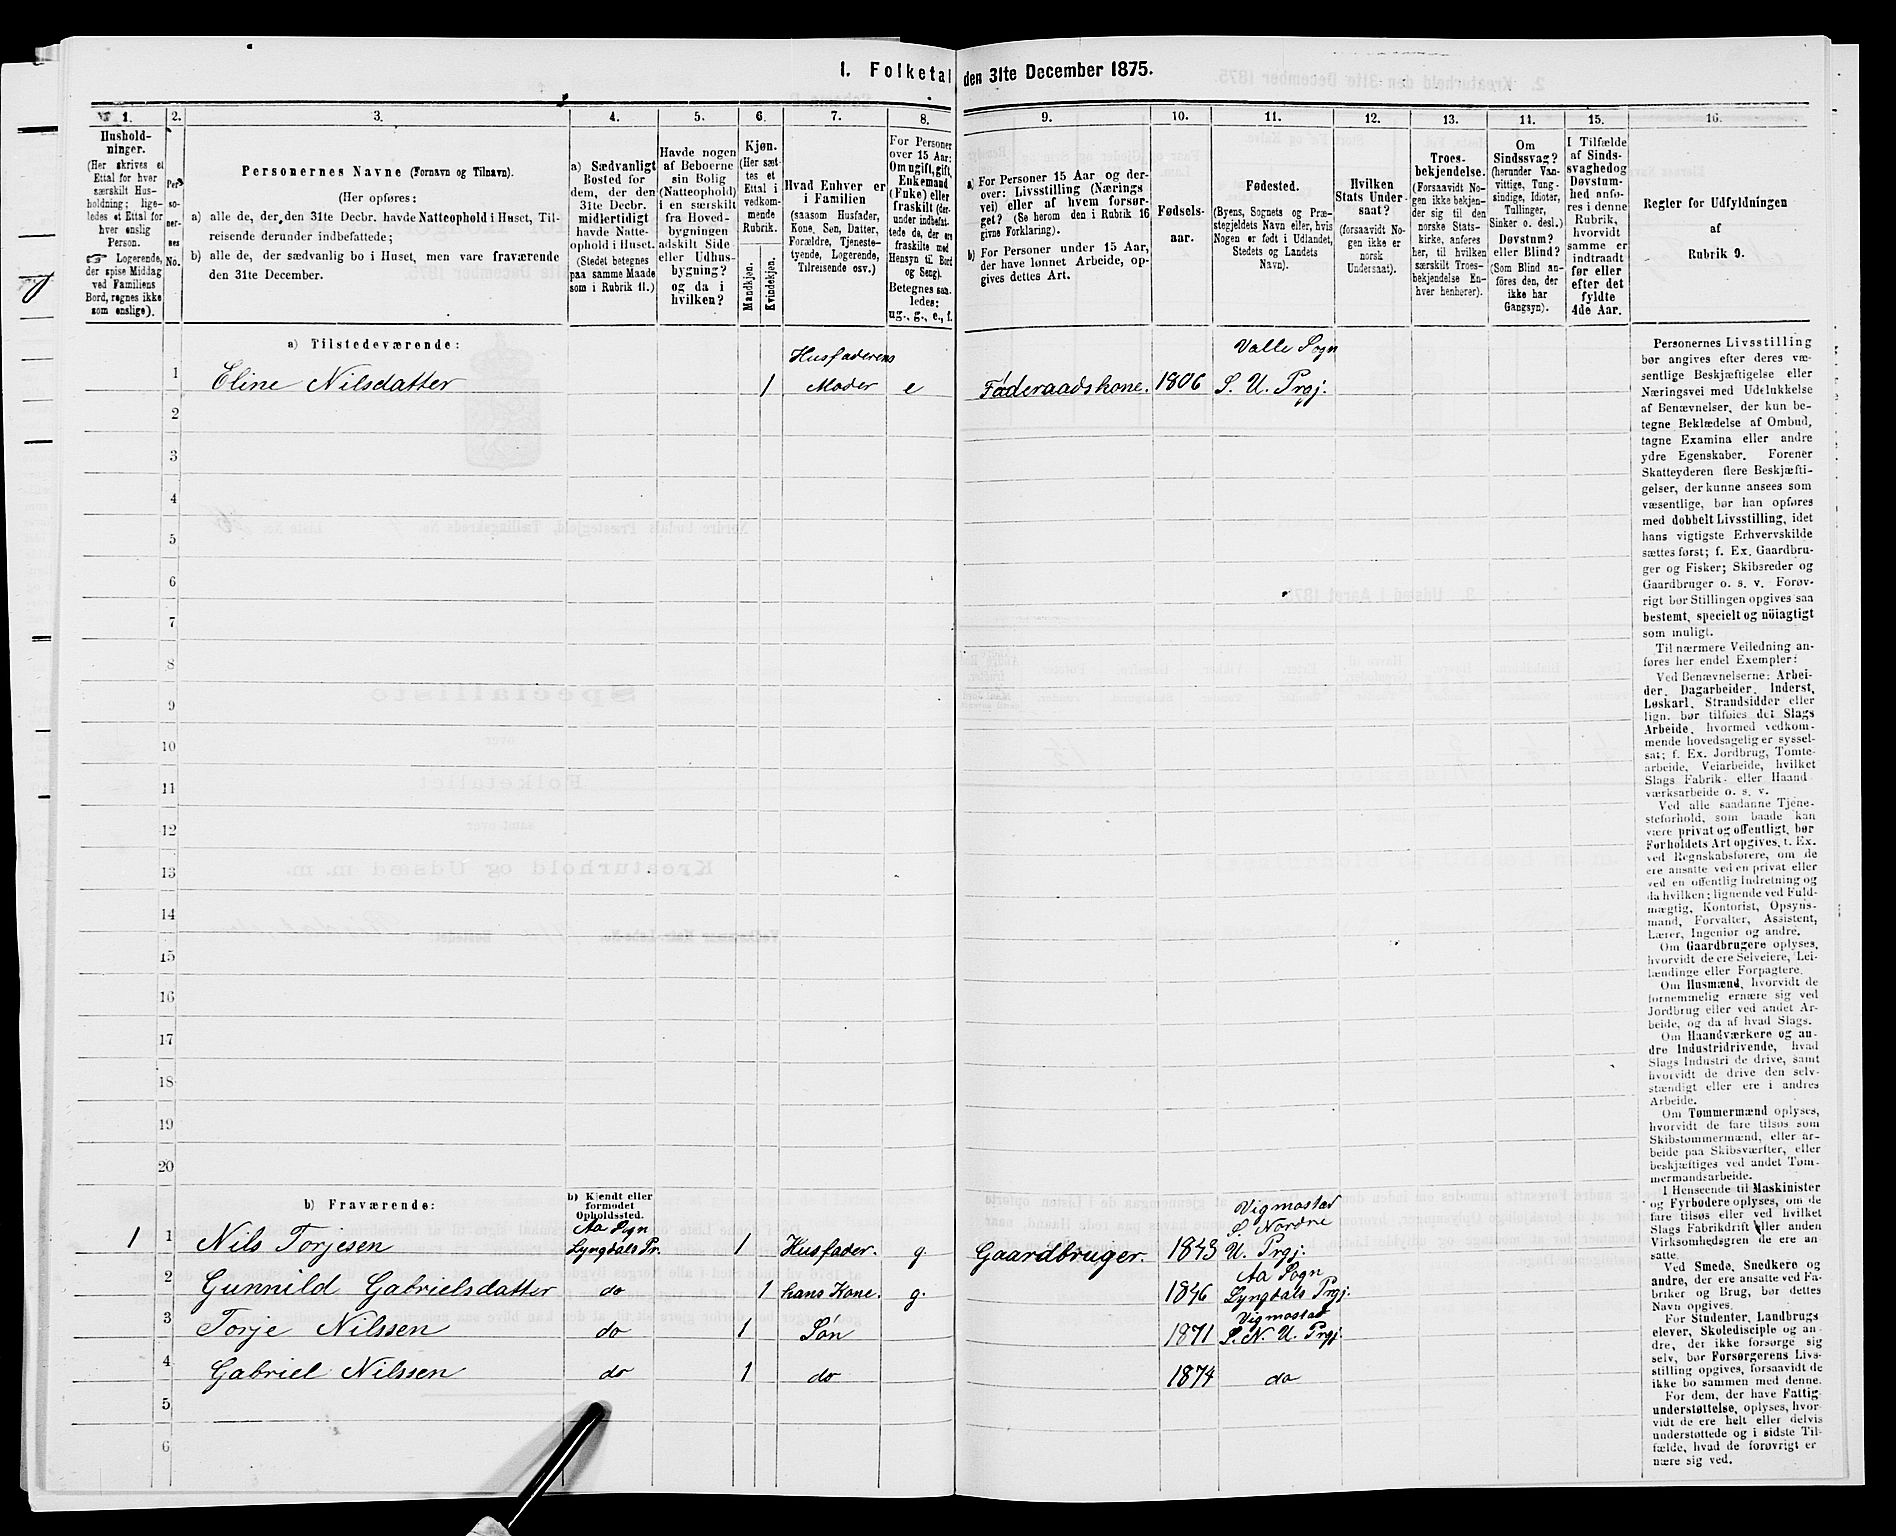 1. Folketal den 31te December 1875.
1.
Hushold-
ninger.
(Her skrives et
Ettal for hver
særskilt Hus-
holdning; lige-
ledes et Ettal for
hver enslig
Person.
Logerende,
der spise Middag
ved Familiens
Bord, regnes ikke
som enslige).
2.
Per-
so-
ner-
nes
No.
3.
Personernes Navne (Fornavn og Tilnavn).
(Her opføres:
a) alle de, der den 31te Decbr. havde Natteophold i Huset, Til-
reisende derunder indbefattede;
b) alle de, der sædvanlig bo i Huset, men vare fraværende
den 31te December.
4.
a) Sædvanligt
Bosted for
dem, der den
31te Decbr.
midlertidigt
havde Natte-
ophold i Huset.
(Stedet betegnes
paa samme Maade
som i Rubrik 11.)
5.
Havde nogen
af Beboerne
sin Bolig
(Natteophold)
i en særskilt
fra Hoved-
bygningen
adskilt Side-
eller Udhus-
bygning?
og da i
hvilken?
6.
Kjøn.
(Her sæt-
tes et
Ettal i
vedkom-
mende
Rubrik.
Mandkjøn.
Kvindekjøn.
7.
Hvad Enhver er
i Familien
(saasom Husfader,
Kone, Søn, Datter,
Forældre, Tjeneste-
tyende, Logerende,
Tilreisende osv.)
8.
For Personer
over 15 Aar:
Om ugift, gift,
Enkemand
(Enke) eller
fraskilt (der-
under indbefat-
tede de, der ere
fraskilte med
Hensyn til Bord
og Seng).
Betegnes saa-
ledes:
ug., g., e., f.
9.
a) For Personer 15 Aar og der-
over: Livsstilling (Nærings-
vei) eller af hvem forsør-
get? (Se herom den i Rubrik 16
givne Forklaring).
b) For Personer under 15 Aar,
der have lønnet Arbeide, op-
gives dettes Art.
10.
Fødsels-
aar.
11.
Fødested.
(Byens, Sognets og Præ-
stegjeldets Navn eller, hvis
Nogen er født i Udlandet,
Stedets og Landets
Navn).
12.
Hvilken
Stats Under-
saat?
(forsaavidt No-
gen ikke er
norsk
Undersaat).
13.
Troes-
bekjendelse.
(Forsaavidt No-
gen ikke bekjen-
der sig til den
norske Stats-
kirke, anføres
her, til hvilken
særskilt Troes-
bekjendelse En-
hver henhører).
14.
Om
Sindssvag?
(herunder Van-
vittige, Tung-
sindige, Idioter,
Tullinger,
Sinker o. desl.)
Døvstum?
eller Blind?
(Som Blind an-
føres den, der
ikke har
Gangsyn).
15.
I Tilfælde
af Sinds-
svaghed og
Døvstum-
hed anfø-
res i denne
Rubrik,
hvorvidt
samme er
indtraadt
før eller
efter det
fyldte
4de Aar.
16.
Regler for Udfyldningen
af
Rubrik 9.
a) Tilstedeværende:
1 Eline Nilsdatter 1 Husfaderens Moder e Føderaadskone. 1806 Valle Sogn S. U. Prgj.
2
3
4
5
6
7
8
9
10
11
12
13
14
15
16
17
18
19
20
b) Fraværende:
b) Kjendt eller
formodet
Opholdssted.
1 1 Nils Torjesen Aa Sogn Lyngdals Pr. 1 Husfader. g. Gaardbruger. 1843 Vigmostad S. Nordre U. Prgj.
2 Gunnild Gabrielsdatter do 1 hans Kone. g. 1846 Aa Sogn Lyngdals Prgj.
3 Torje Nilssen do 1 Søn 1871 Vigmostad S. N. U. Prgj.
4 Gabriel Nilssen do 1 do 1874 do
5
6
Personernes Livsstilling
bør angives efter deres væ-
sentlige Beskjæftigelse eller
Næringsvei med Udelukkelse
af Benævnelser, der kun be-
tegne Beklædelse af Ombud,
tagne Examina eller andre
ydre Egenskaber. Forener
Skatteyderen flere Beskjæfti-
gelser, der kunne ansees som
væsentlige, bør han opføres
med dobbelt Livsstilling, idet
hans vigtigste Erhvervskilde
sættes først; f. Ex. Gaardbru-
ger og Fisker; Skibsreder og
Gaardbruger o. s. v. Forøv-
rigt bør Stillingen opgives saa
bestemt, specielt og nöiagtigt
som muligt.
Til nærmere Veiledning an-
føres her endel Exempler:
Ved Benævnelserne: Arbei-
der, Dagarbeider, Inderst,
Løskarl, Strandsidder eller
lign. bør tilføies det Slags
Arbeide, hvormed vedkom-
mende hovedsagelig er syssel-
sat; f. Ex. Jordbrug, Tomte-
arbeide, Veiarbeide, hvilket
Slags Fabrik- eller Haand-
værksarbeide o. s. v.
Ved alle saadanne Tjene-
steforhold, som baade kan
være privat og offentligt, bør
Forholdets Art opgives, f. Ex.
ved Regnskabsførere, om de
ere ansatte ved en privat eller
ved en offentlig Indretning og
da hvilken; lignende ved Fuld-
mægtig, Kontorist, Opsyns-
mand, Forvalter, Assistent,
Lærer, Ingeniør og andre.
Om Gaardbrugere oplyses,
hvorvidt de ere Selveiere, Lei-
lændinge eller Forpagtere.
Om Husmænd, hvorvidt de
fornemmelig ernære sig ved
Jordbrug eller ved andet Ar-
beide, og da af hvad Slags.
Om Haandværkere og an-
dre Industridrivende, hvad
Slags Industri de drive, samt
hvorvidt de drive den selv-
stændigt eller ere i andres
Arbeide.
Om Tømmermænd oplyses,
hvorvidt de fare tilsøs som
Skibstømmermænd, eller ar-
beide paa Skibsværfter, eller
beskjæftiges ved andet Tøm-
mermandsarbeide.
I Henseende til Maskinister
og Fyrbødere oplyses, om de
fare tilsøs eller ved hvilket
Slags Fabrikdrift eller anden
Virksomhedsgren de ere an-
satte.
Ved Smede, Snedkere og
andre, der ere ansatte ved Fa-
briker og Brug, bør dettes
Navn opgives.
For Studenter, Landbrugs-
elever, Skoledisciple og an-
dre, der ikke forsørge sig
selv, bør Forsørgerens Livs-
stilling opgives, forsaavidt de
ikke bo sammen med denne.
For dem, der have Fattig-
understøttelse, oplyses, hvor-
vidt de ere helt eller delvis
understøttede og i sidste Til-
fælde, hvad de forøvrigt er
nære sig ved.